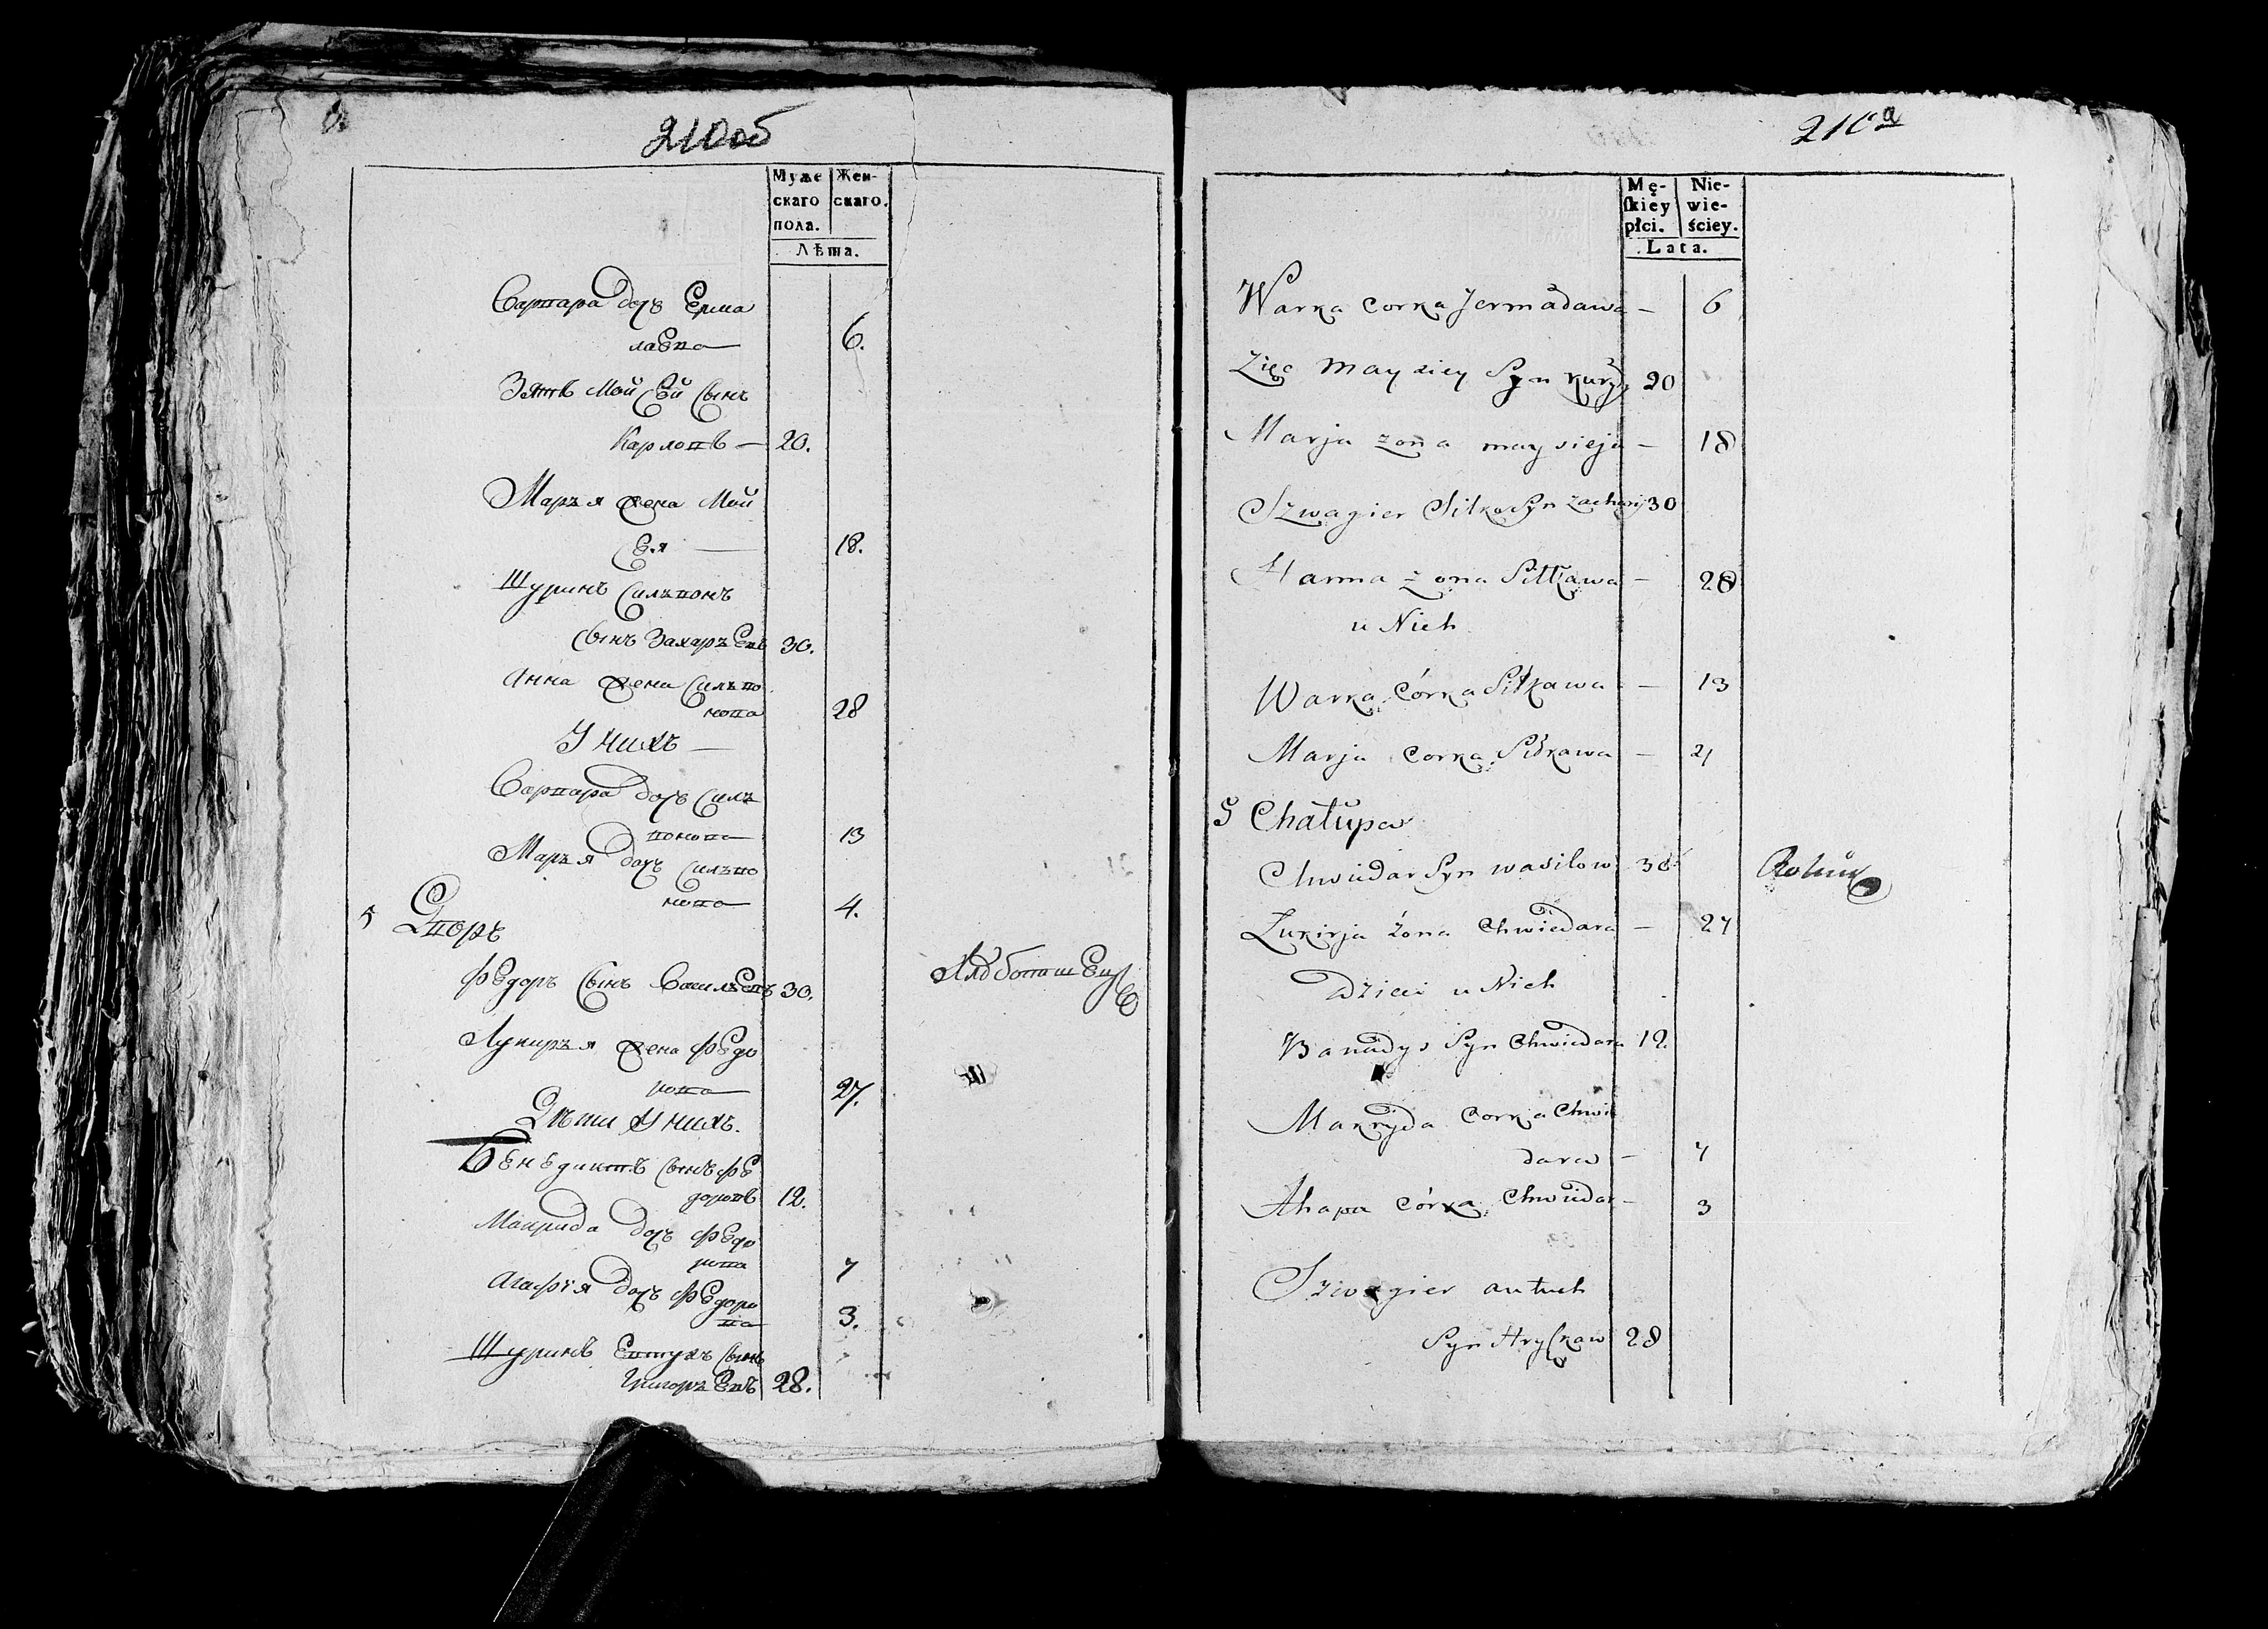 210об
Муже
скаго
пола.
Жен-
скаго.
Лѣта.
Варвара дочь Ерма
лаева 6.
Зять Мойсей сынъ
Карловъ — 20.
Марья жена Мой
сея — 18.
Шуринъ Сильвонъ
сынъ Захарьевъ 30.
Анна жена Сильво
нова 28
У нихъ —
Варвара дочь Силь
вонова 13
Марья дочь Сильво
нова 4.
5 Дворъ
Федоръ сынъ Васильевъ 30.
Лукирья жена Федо
рова 27.
Дѣти У нихъ.
Бенедиктъ сынъ Фе
доровъ 12.
Макрида дочь Федо
рова 7
Агафія дочь Федоро
ва 3.
Шуринъ Евтухъ сынъ
Григорьевъ 28.
210a
Mę-
skiey
płci.
Nie-
wie-
ściey.
Lata.
Warka corka Jermaława — 6
Zięc Maysiey Syn 20
Marja zona maysieja — 18
Szwagier Siłko Syn Zachary 30
Hanna zona Siłkawa — 28
u Nich
Warka Córka Siłkawa — 13
Marja Corka Siłkawa — 4
5 Chałupa
Chwiedar Syn wasilow 30 Rolnik
Łukirja żona Chwiedara — 27
Dzieci u Nich
Banadys Syn Chwiedara 12.
Makryda Corka Chwie
dara — 7
Ahapa Córka Chwiedar — 3
Szwagier autuch
Syn Hryskaw 28